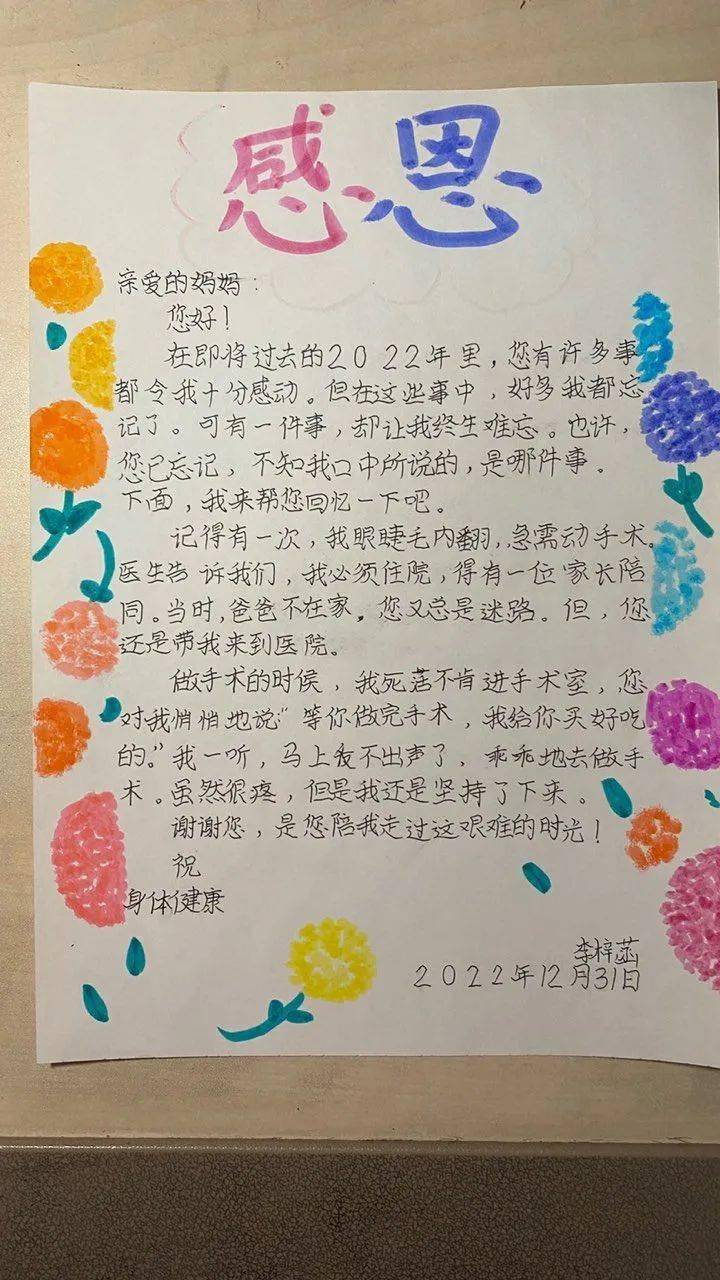 感恩
亲爱的妈妈：
您好！
在即将过去的2022年里，您有许多事
都令我十分感动。但在这些事中，好多我都忘
记了。可有一件事，却让我终生难忘。也许，
您已忘记，不知我口中所说的，是哪件事。
下面，我来帮您回忆一下吧。
记得有一次，我眼睫毛内翻，急需动手术。
医生告诉我们，我必须住院，得有一位家长陪
同。当时，爸爸不在家，您又总是迷路。但，您
还是带我来到医院。
做手术的时候，我死活不肯进手术室，您
对我悄悄地说“等你做完手术，我给你买好吃
的。”我一听，马上发不出声了，乖乖地去做手
术。虽然很疼，但是我还是坚持了下来。
谢谢您，是您陪我走过这艰难的时光！
祝
身体健康
李梓菡
2022年12月31日